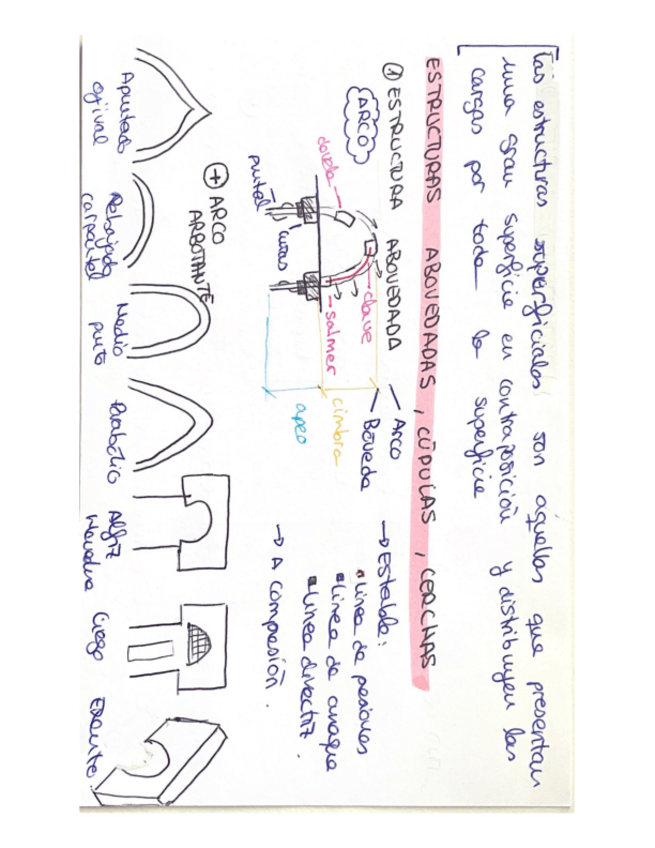 Las estructuras superficiales son aquellas que presentan
una gran superficie en contraposición y distribuyen las
cargas por toda la superficie
ESTRUCTURAS ABOVEDADAS, CÚPULAS, CERCHAS
① ESTRUCTURA ABOVEDADA
Arco
Bóveda
ARCO
dovela
clave
salmer
cuñas
puntal
cimbra
apeo
→ Estable:
línea de presiones
línea de
línea directriz.
→ A compresión.
+ ARCO
ARBOTANTE
Apuntado
ojival
Rebajado
carpanel
Medio
punto
Parabólico
Alfiz
Ciego